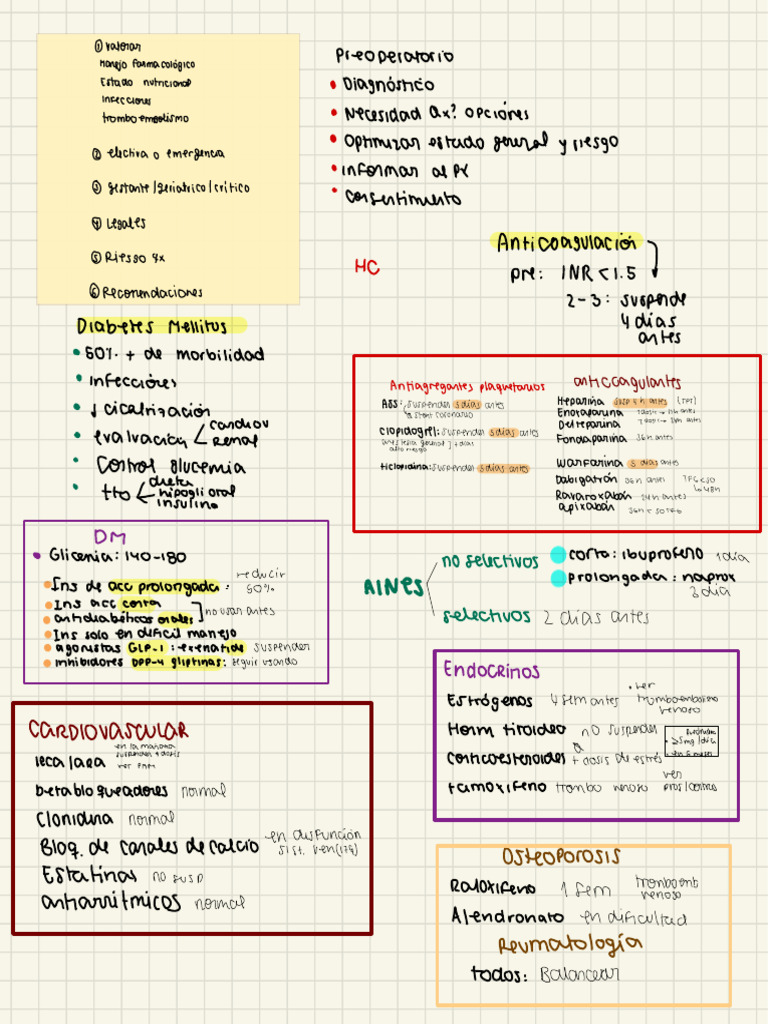 ① valorar
Manejo farmacológico
Estado nutricional
infecciones
tromboembolismo
② electiva o emergencia
③ gestante/geriatrico/crítico
④ Legales
⑤ Riesgo qx
⑥ Recomendaciones
Preoperatorio
• Diagnóstico
• Necesidad Qx? opciónes
• Optimizar estado general y riesgo
• informar al PX
• Consentimiento
HC
Anticoagulación
pre: INR < 1.5
2-3: suspende
4 días
antes
Diabetes Mellitus
• 50% + de morbilidad
• infecciónes
• ↓ cicatrización
• evaluación < cardiov
renal
• Control glucemia
• tto < dieta
hipogli oral
insulina
Antiagregantes plaquetarios
ASS: suspender 5 días antes
stent coronarios
Clopidogrel: suspender 5 días antes
anestesia general
alto riesgo
ticlopidina: suspender 5 días antes
anticoagulantes
Heparina susp 6 h antes (TPT)
Enoxaparina
Delteparina
Fondaparina 36h antes
Warfarina 5 días antes
Dabigatrán
Ravaroxabán 24h antes
apixabán
DM
• Glicemia: 140-180
• Ins de acc prolongada: reducir
50%
• Ins acc corta
• antidiabéticos orales ] no usar antes
• Ins solo en dificil manejo
• agonistas GLP-1: exenatide suspender
• inhibidores DPP-4 gliptinas: seguir usando
AINES
no selectivos
corta: ibuprofeno 1 día
prolongada: naprox
3 día
selectivos 2 días antes
CARDIOVASCULAR
ieca/ara en la mañana
suspender 1 dosis
betabloqueadores normal
clonidina normal
Bloq. de canales de calcio en disfunción
sist. ven(izq)
Estatinas no susp
antiarritmicos normal
ENDOCRINOS
Estrógenos 4 sem antes • ver
tromboembolismo
venoso
Horm tiroideo no suspender
corticoesteroides + dosis de estrés
≥5mg/día
tamoxifeno trombo venoso ver
pros/contras
OSTEOPOROSIS
Raloxifeno 1 sem tromboemb
venoso
Alendronato en dificultad
Reumatología
todos: Balancear